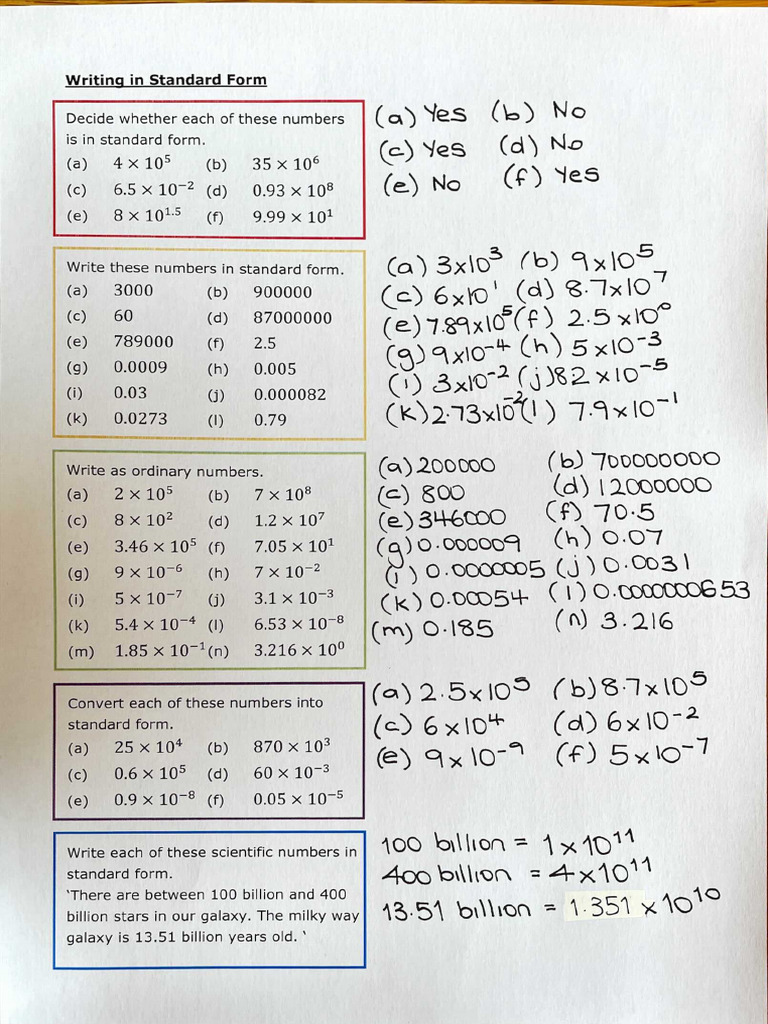 Writing in Standard Form
Decide whether each of these numbers
is in standard form.
(a) 4 × 10⁵ (b) 35 × 10⁶
(c) 6.5 × 10⁻² (d) 0.93 × 10⁸
(e) 8 × 10¹·⁵ (f) 9.99 × 10¹
(a) Yes (b) No
(c) Yes (d) No
(e) No (f) Yes
Write these numbers in standard form.
(a) 3000 (b) 900000
(c) 60 (d) 87000000
(e) 789000 (f) 2.5
(g) 0.0009 (h) 0.005
(i) 0.03 (j) 0.000082
(k) 0.0273 (l) 0.79
(a) 3×10³ (b) 9×10⁵
(c) 6×10¹ (d) 8.7×10⁷
(e) 7.89×10⁵ (f) 2.5×10⁰
(g) 9×10⁻⁴ (h) 5×10⁻³
(i) 3×10⁻² (j) 82×10⁻⁵
(k) 2.73×10⁻² (l) 7.9×10⁻¹
Write as ordinary numbers.
(a) 2 × 10⁵ (b) 7 × 10⁸
(c) 8 × 10² (d) 1.2 × 10⁷
(e) 3.46 × 10⁵ (f) 7.05 × 10¹
(g) 9 × 10⁻⁶ (h) 7 × 10⁻²
(i) 5 × 10⁻⁷ (j) 3.1 × 10⁻³
(k) 5.4 × 10⁻⁴ (l) 6.53 × 10⁻⁸
(m) 1.85 × 10⁻¹ (n) 3.216 × 10⁰
(a) 200000 (b) 700000000
(c) 800 (d) 12000000
(e) 346000 (f) 70.5
(g) 0.000009 (h) 0.07
(i) 0.0000005 (j) 0.0031
(k) 0.00054 (l) 0.0000000653
(m) 0.185 (n) 3.216
Convert each of these numbers into
standard form.
(a) 25 × 10⁴ (b) 870 × 10³
(c) 0.6 × 10⁵ (d) 60 × 10⁻³
(e) 0.9 × 10⁻⁸ (f) 0.05 × 10⁻⁵
(a) 2.5×10⁵ (b) 8.7×10⁵
(c) 6×10⁴ (d) 6×10⁻²
(e) 9×10⁻⁹ (f) 5×10⁻⁷
Write each of these scientific numbers in
standard form.
‘There are between 100 billion and 400
billion stars in our galaxy. The milky way
galaxy is 13.51 billion years old. ‘
100 billion = 1×10¹¹
400 billion = 4×10¹¹
13.51 billion = 1.351×10¹⁰